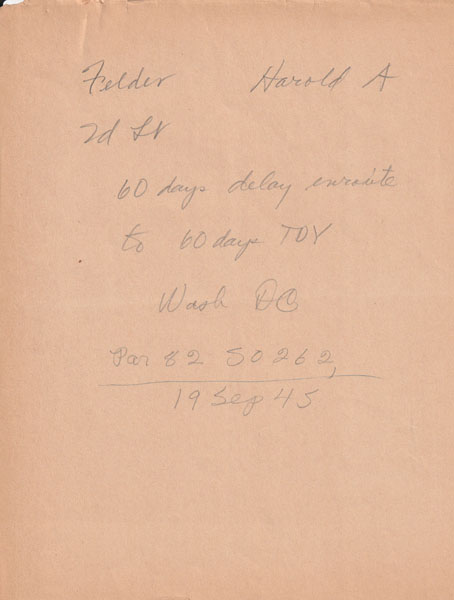 Felder Harold A
2d Lt
60 days delay enroute
to 60 days TDY
Wash DC
Par 82 SO 262,
19 Sep 45